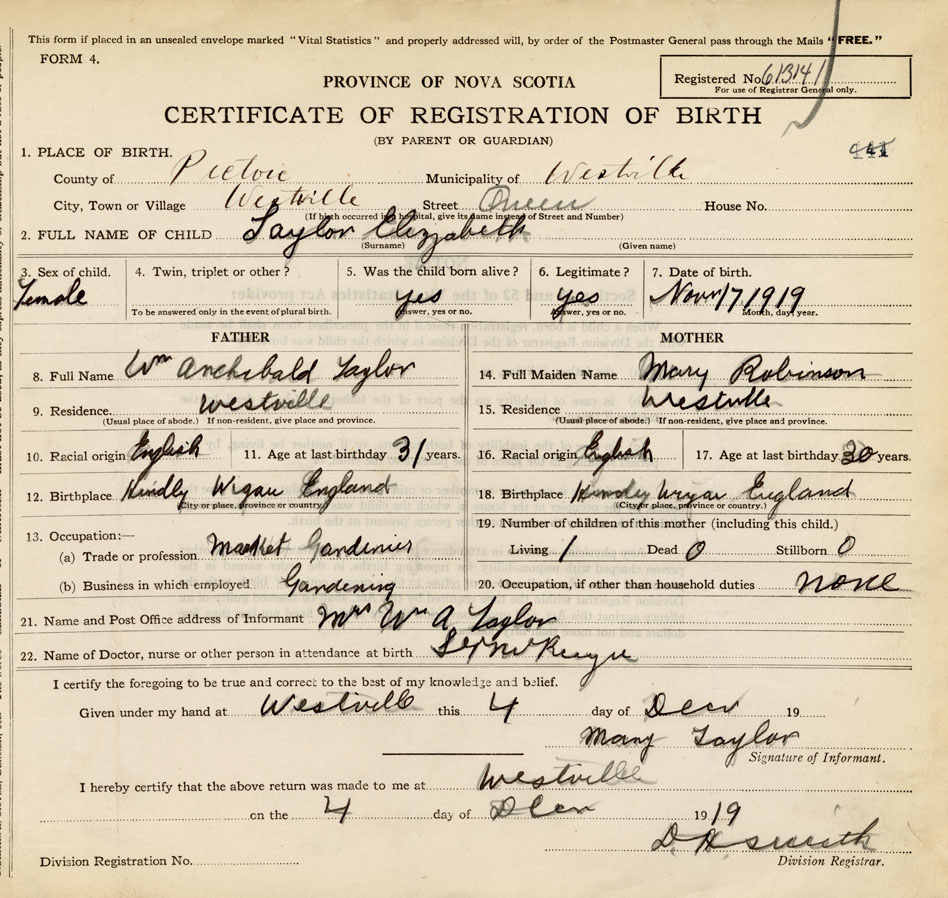 This form if placed in an unsealed envelope marked "Vital Statistics" and properly addressed will, by order of the Postmaster General pass through the Mails "FREE."
FORM 4.
Registered No. 61314
For use of Registrar General only.
PROVINCE OF NOVA SCOTIA
CERTIFICATE OF REGISTRATION OF BIRTH
(BY PARENT OR GUARDIAN)
441
1. PLACE OF BIRTH.
County of Pictou Municipality of Westville
City, Town or Village Westville Street Queen House No.
(If birth occurred in hospital, give its name instead of Street and Number)
2. FULL NAME OF CHILD Taylor Elizzabeth
(Surname) (Given name)
3. Sex of child. Female
4. Twin, triplet or other?
To be answered only in the event of plural birth.
5. Was the child born alive? yes
Answer, yes or no.
6. Legitimate? yes
Answer, yes or no.
7. Date of birth. Novr 17 1919
Month, day, year.
FATHER
8. Full Name Wm Archibald Taylor
9. Residence. Westville
(Usual place of abode.) If non-resident, give place and province.
10. Racial origin English 11. Age at last birthday 31 years.
12. Birthplace Hindly Wigan England
(City or place, province or country)
13. Occupation:—
(a) Trade or profession Market Gardenier
(b) Business in which employed Gardening
MOTHER
14. Full Maiden Name Mary Robinson
15. Residence Westville
(Usual place of abode.) If non-resident, give place and province.
16. Racial origin English 17. Age at last birthday 30 years.
18. Birthplace Hindly Wigan England
(City or place, province or country.)
19. Number of children of this mother (including this child.)
Living 1 Dead 0 Stillborn 0
20. Occupation, if other than household duties none
21. Name and Post Office address of Informant Mrs Wm A Taylor
22. Name of Doctor, nurse or other person in attendance at birth
I certify the foregoing to be true and correct to the best of my knowledge and belief.
Given under my hand at Westville this 4 day of Decr 19
Mary Taylor
Signature of Informant.
I hereby certify that the above return was made to me at Westville
on the 4 day of Decr 1919
D. H. Smith
Division Registrar.
Division Registration No.